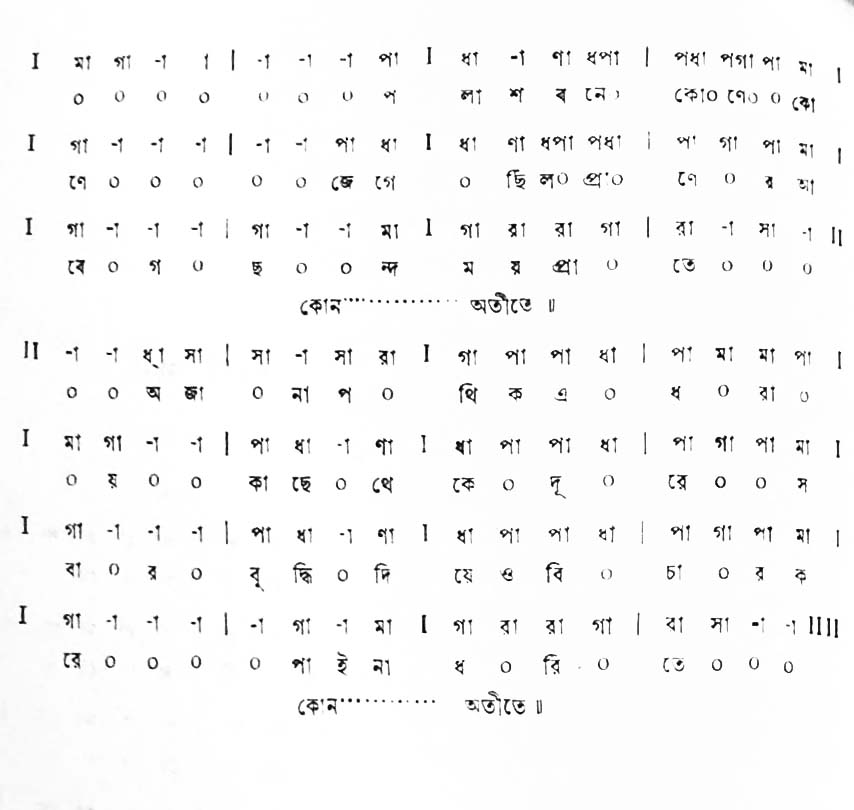 I মা গা -া া | -া -া -া পা I ধা -া ণা ধপা | পধা পগা পা মা |
০ ০ ০ ০ ০ ০ ০ প লা শ ব নে০ কো০ ণে০ ০ কো
I গা -া -া -া | -া -া পা ধা I ধা ণা ধপা পধা | পা গা পা মা |
ণে ০ ০ ০ ০ ০ জে গে ০ ছি ল০ প্রা০ ণে ০ র আ
I গা -া -া -া | গা -া -া মা I গা রা রা গা | রা -া সা -া II
বে ০ গ ০ ছ ০ ০ ন্দ ম য় প্রা ০ তে ০ ০ ০
কোন·················· অতীতে ॥
II -া -া ধ্া সা | সা -া সা রা I গা পা পা ধা | পা মা মা পা |
০ ০ অ জা ০ না প ০ থি ক এ ০ ধ ০ রা ০
I মা গা -া -া | পা ধা -া ণা I ধা পা পা ধা | পা গা পা মা I
০ য় ০ ০ কা ছে ০ থে কে ০ দূ ০ রে ০ ০ স
I গা -া -া -া | পা ধা -া ণা I ধা পা পা ধা | পা গা পা মা |
বা ০ র ০ বু দ্ধি ০ দি য়ে ও বি ০ চা ০ র ক
I গা -া -া -া | -া গা -া মা I গা রা রা গা | রা সা -া -া IIII
রে ০ ০ ০ ০ পা ই না ধ ০ রি ০ তে ০ ০ ০
কোন··············· অতীতে ॥